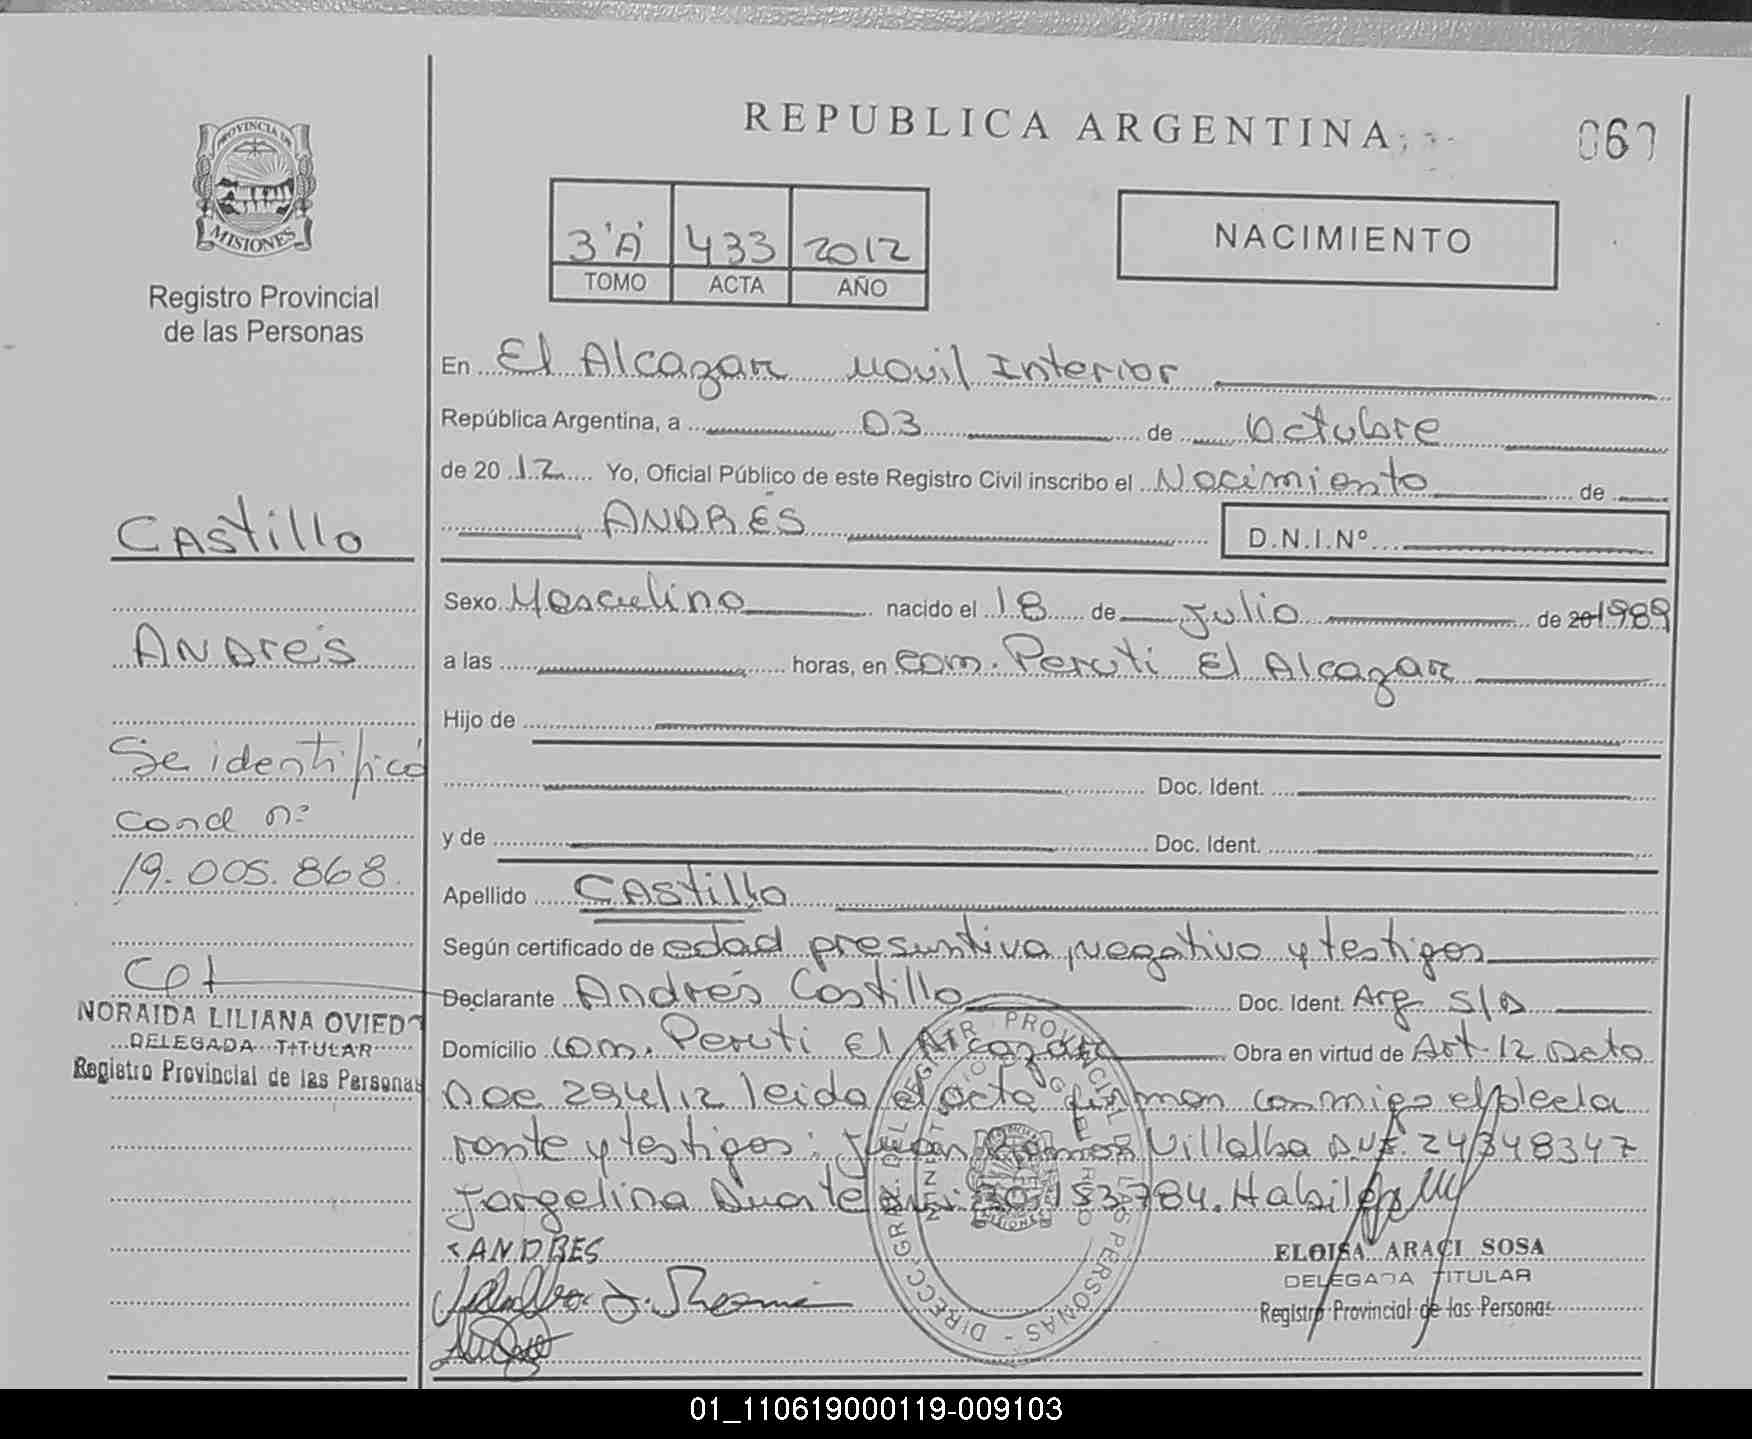 REPUBLICA ARGENTINA
060
PROVINCIA DE
MISIONES
Registro Provincial
de las Personas
3 "A" 433 2012
TOMO ACTA AÑO
NACIMIENTO
En El Alcazar Movil Interior
República Argentina, a 03 de Octubre
de 20 12 Yo, Oficial Público de este Registro Civil inscribo el Nacimiento de
ANDRÉS D.N.I.Nº
Castillo
Sexo Masculino nacido el 18 de Julio de 20 1989
Andrés
a las horas, en com. Peruti El Alcazar
Hijo de
Doc. Ident.
y de Doc. Ident.
Se identificó
con d nº
19.005.868.
Apellido Castillo
Según certificado de edad presuntiva, negativo y testigos
Declarante Andrés Castillo Doc. Ident. Arg. S/D
NORAIDA LILIANA OVIEDO
DELEGADA TITULAR
Registro Provincial de las Personas
Domicilio com. Peruti El Alcazar Obra en virtud de Art. 12 Dcto
294/12 leida el acta firman conmigo el decla
rante y testigos: Juan Ramon Villalba D.N.I. 24348347
Jorgelina Duarte 30.183.784.
ANDRES
ELOISA ARACI SOSA
DELEGADA TITULAR
Registro Provincial de las Personas
01_110619000119-009103